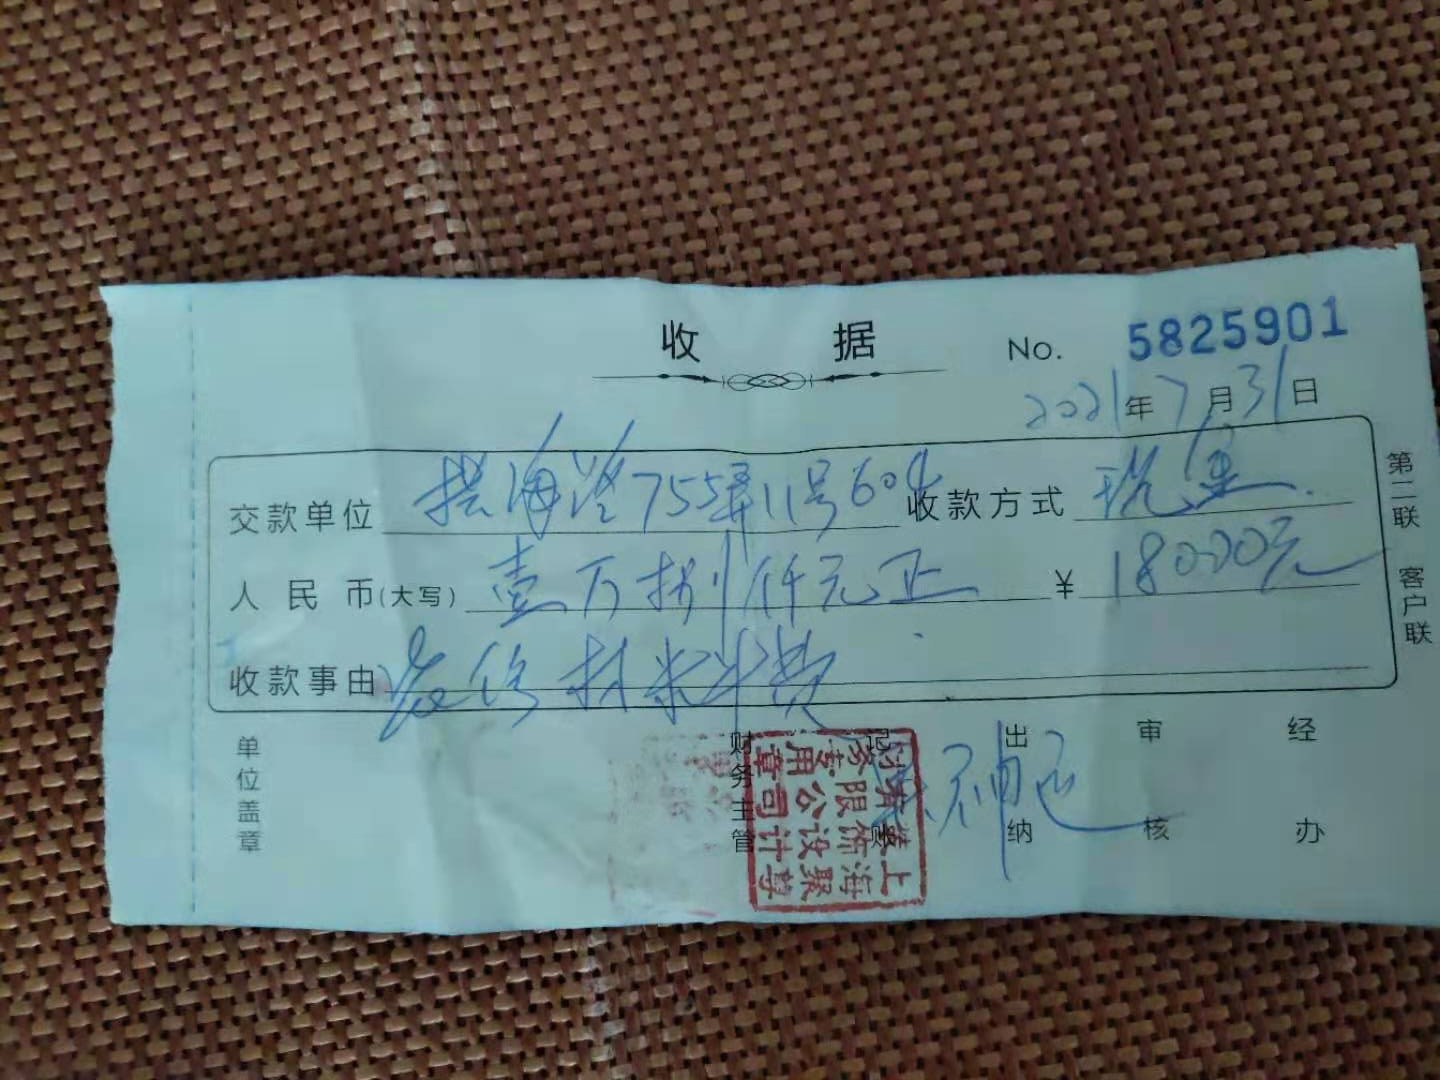 收 据 No. 5825901
2021年7月31日
交款单位 拱海路755弄11号604 收款方式 现金
人民币(大写) 壹万捌仟元正 ¥ 18000元
收款事由 装修材料费
第二联 客户联
单位盖章
财务主管
记账
出纳
审核
经办
上海聚尊
装饰设计
有限公司
财务专用章